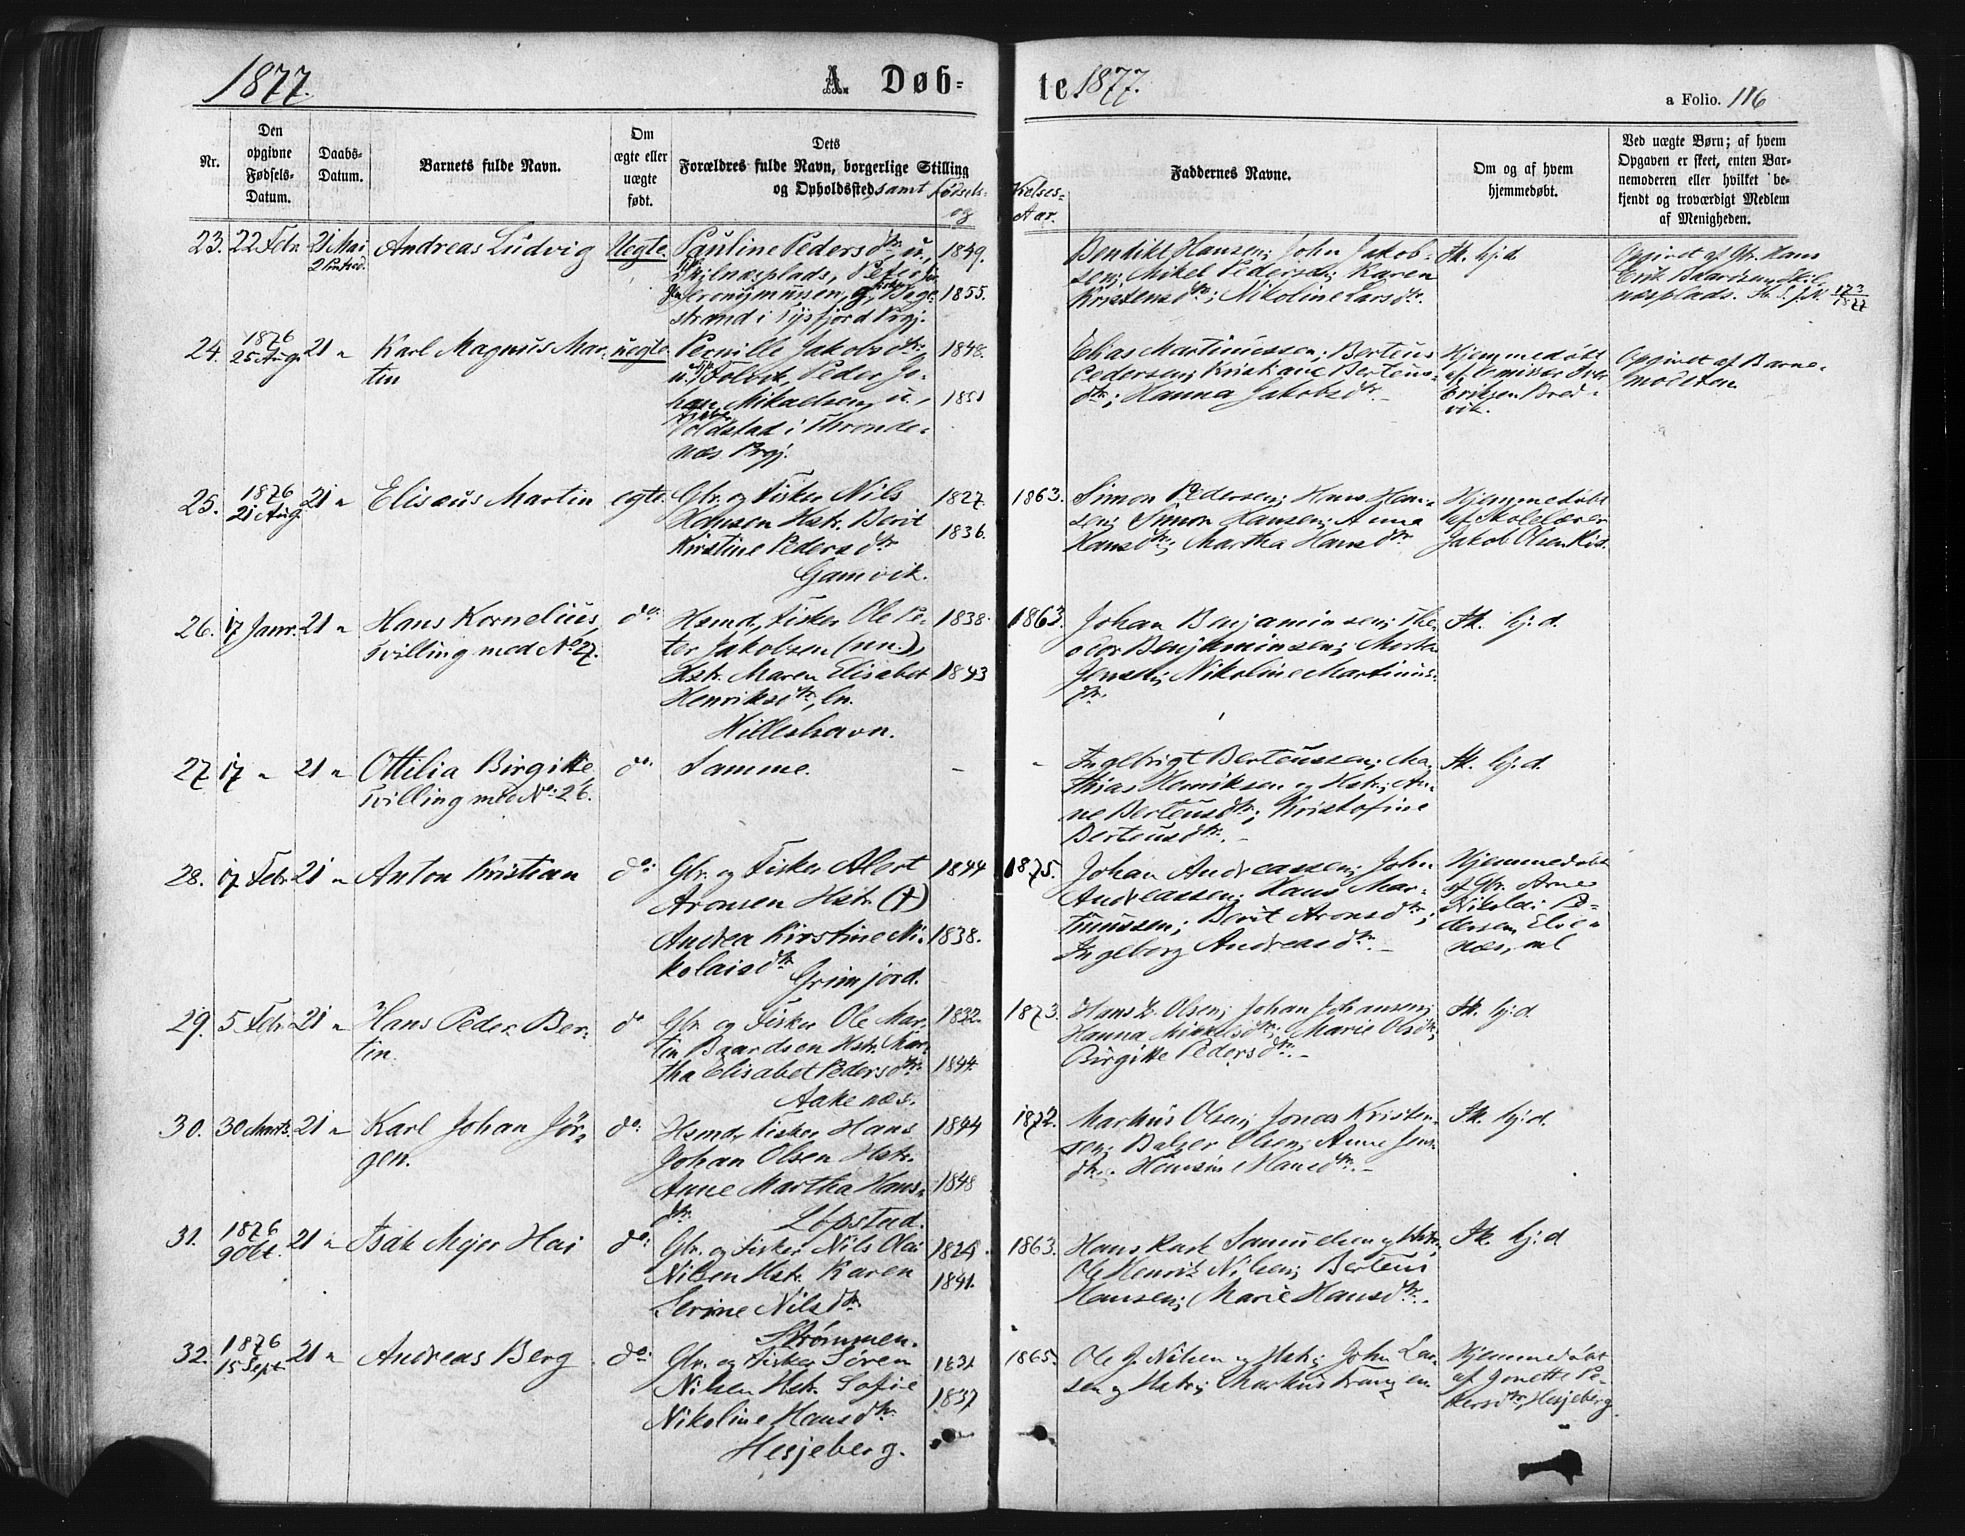 1877. A. Døb-
te. 1877.
a Folio. 116
Nr.
Den
opgivne
Fødsels-
Datum.
Daabs-
Datum.
Barnets fulde Navn.
Om
ægte eller
uægte
født.
Dets
Forældres fulde Navn, borgerlige Stilling
og Opholdssted, samt Fødsels-
og
Kelses-
Aar.
Faddernes Navne.
Om og af hvem
hjemmedøbt.
Ved uægte Børn; af hvem
Opgaven er skeet, enten Bar-
nemoderen eller hvilket be-
kjendt og troværdigt Medlem
af Menigheden.
23. 22 Febr. 21 Mai Andreas Ludvig Uegte. Pauline Pedersdtr., u., 1849.
2 Pintsed.
næsplads, Peter
Jeronymussen, g., 1855.
strand i Tysfjord Prgj.
Bendikt Hansen; John Jakob-
sen; Mikel Pedersen; Karen
Kristensdtr.; Nikoline Larsdtr.
Ik. hj: d
Opgivet af Gbr. Hans
Erik Baardsen
næsplads. 173/1877
24. 1876 25 Aug. 21 " Karl Magnus Mar-
tin
uegte Pernille Jakobsdtr. 1848.
u., Peder Jo-
han Mikaelsen, u., 1851
Voldstad i Thronde-
næs Prgj.
Elias Martinussen; Berteus
Pedersen; Kristiane Berteus-
dtr.; Hanna Jakobsdtr.
Hjemmedøbt
af Emissær Iver
Eriksen Bred-
vik.
Opgivet af Barne-
moderen.
25. 1876 21 Aug. 21 " Elisæus Martin egte. Gbr. og Fisker Nils 1827.
Hansen Hstr. Berit 1836.
Kirstine Pedersdtr.
Gamvik.
1863. Simon Pedersen; Hans Han-
sen; Simon Hansen; Anna
Hansdtr.; Martha Hansdtr.
Hjemmedøbt
af Skolelærer
Jakob Olsen
26. 17 Janr. 21 " Hans Kornelius, do. Hsmd., Fisker Ole Pe- 1838.
Tvilling med No 27.
ter Jakobsen (nn.),
Hstr. Maren Elisabet 1843
Henriksdtr., ln.
Hilleshavn.
1863. Johan Benjaminsen; The-
odor Benjaminsen; Martha
Jensd; Nikoline Martinus-
dtr.
Ik. hj: d.
27. 17 " 21 " Ottilia Birgitte do. Samme. –
Tvilling med No: 26.
– Ingebrigt Berteussen; Ma-
thias Henriksen og Hstr.; An-
ne Berteusdtr.; Kristofine
Berteusdtr. –
Ik. hj: d.
28. 17 Febr. 21 " Anton Kristian do: Gbr. og Fisker Alert 1844
Aronsen Hstr. (†)
Andrea Kirstine Ni- 1838.
kolaisdtr. Grimjord.
1875. Johan Andreassen; John
Andreassen; Hans Mar-
tinussen; Berit Aronsdtr.;
Ingeborg Andreasdtr. –
Hjemmedøbt
af Gbr. Arne
Nikolai Pe-
dersen, Elve-
næs,
29. 5 Febr. 21 " Hans Peder Ber-
tin.
do Gbr. og Fisker Ole Mar-
tin Baardsen Hstr. Mar-
tha Elisabet Pedersdtr. 1844.
Aakenæs.
1873. Hans Olsen; Johan Johansen;
Hanna Mikkelsdtr.; Marie Olsdtr.;
Birgitte Pedersdtr. –
Ik. hj: d
30. 30 Marts. 21 " Karl Johan Jør-
gen.
do: Hsmd., Fisker Hans 1844
Johan Olsen Hstr.
Anne Martha Hans- 1848
dtr. Løpstad.
1872. Markus Olsen; Jonas Kristen-
sen; Balzer Olsen; Anne Jens-
dtr.; Hansine Hansdtr. –
Ik. hj: d.
31. 1876 9 Okt. 21 " Isak Mejer Hai do: Gbr. og Fisker Nils Olai
Nilsen Hstr. Karen 1841.
Serine Nilsdtr.
Strømmen.
1863. Hans Samuelsen og Hstr.;
Ole Henrik Nilsen; Berteus
Hansen; Marie Hansdtr.
Ik. hj: d
32. 1876 15 Sept. 21 " Andreas Berg do: Gbr. og Fisker Søren 1831
Nilsen Hstr. Sofie 1837
Nikoline Hansdtr.
Hesjeberg.
1865. Ole J. Nilsen og Hstr.; John Lar-
sen og Hstr.; Markus Frantzen
Hjemmedøbt
af Jonette Pe-
dersdtr., Hesjeberg.